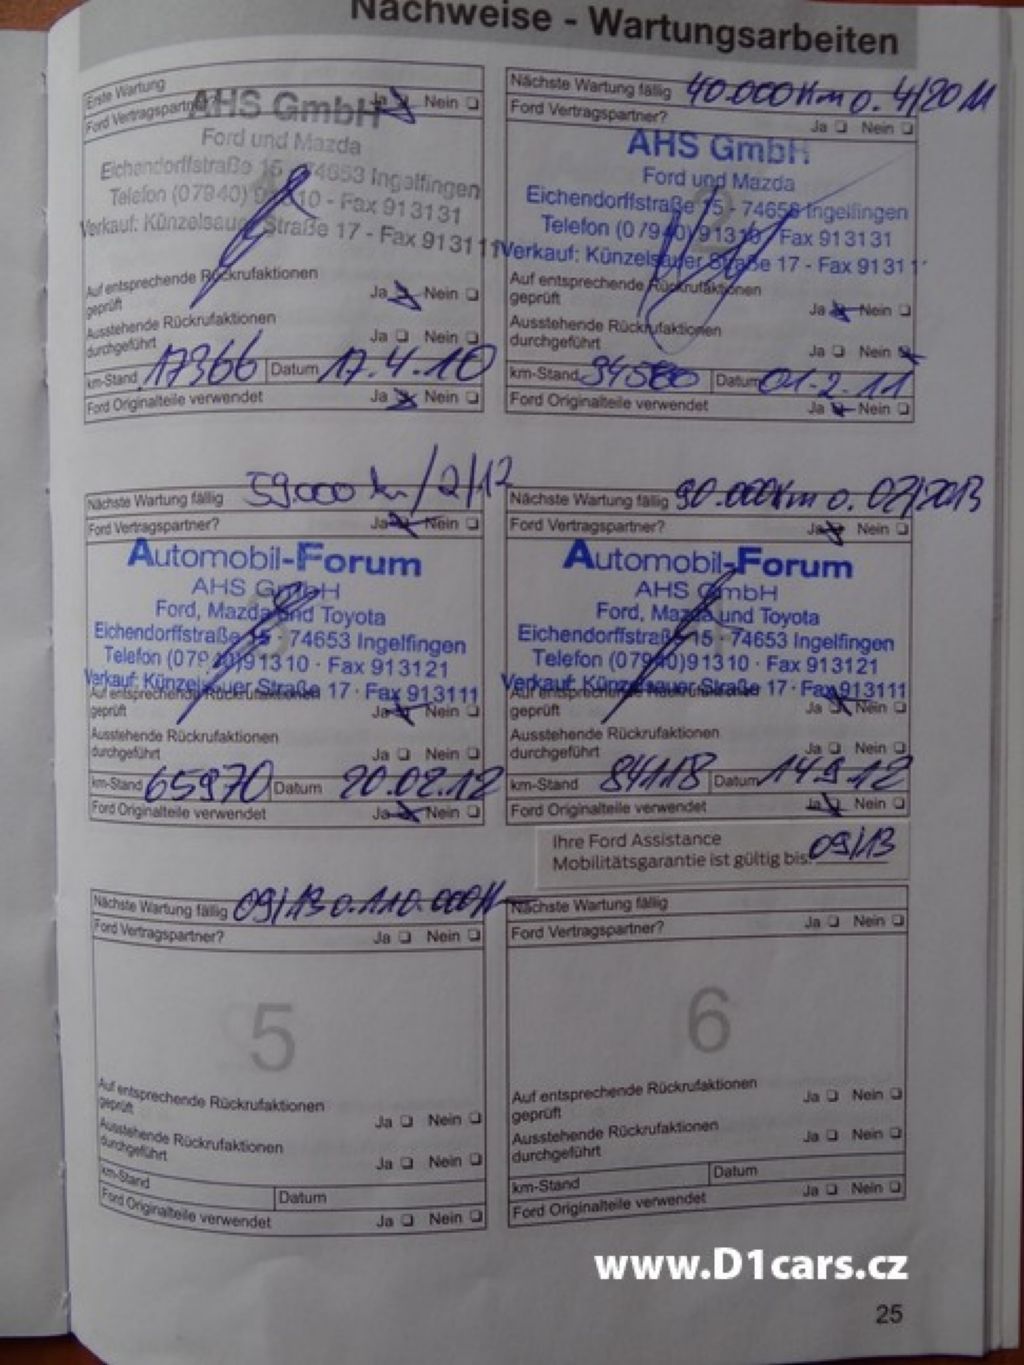 Nachweise - Wartungsarbeiten
Erste Wartung
Ford Vertragspartner Ja Nein
AHS GmbH
Ford und Mazda
Eichendorffstraße 15 - 74653 Ingelfingen
Telefon (07940) 91310 - Fax 913131
Verkauf: Künzelsauer Straße 17 - Fax 913111
Auf entsprechende Rückrufaktionen
geprüft Ja Nein
Ausstehende Rückrufaktionen
durchgeführt Ja Nein
km-Stand 17366 Datum 17.4.10
Ford Originalteile verwendet Ja Nein
Nächste Wartung fällig 40.000 Km o. 4/2011
Ford Vertragspartner? Ja Nein
2
AHS GmbH
Ford und Mazda
Eichendorffstraße 15 - 74653 Ingelfingen
Telefon (07940) 91310 Fax 913131
Verkauf: Künzelsauer Straße 17 - Fax 913111
Auf entsprechende Rückrufaktionen
geprüft Ja Nein
Ausstehende Rückrufaktionen
durchgeführt Ja Nein
km-Stand 34580 Datum 01.2.11
Ford Originalteile verwendet Ja Nein
Nächste Wartung fällig 59000 km/2/12
Ford Vertragspartner? Ja Nein
Automobil-Forum
AHS GmbH
Ford, Mazda und Toyota
Eichendorffstraße 15 · 74653 Ingelfingen
Telefon (07940)91310 · Fax 913121
Verkauf: Künzelsauer Straße 17 · Fax 913111
Auf entsprechende Rückrufaktionen
geprüft Ja Nein
Ausstehende Rückrufaktionen
durchgeführt Ja Nein
km-Stand 65970 Datum 20.02.12
Ford Originalteile verwendet Ja Nein
Nächste Wartung fällig 90.000 Km o. 02/2013
Ford Vertragspartner? Ja Nein
Automobil-Forum
AHS GmbH
Ford, Mazda und Toyota
Eichendorffstraße 15 · 74653 Ingelfingen
Telefon (07940)91310 · Fax 913121
Verkauf: Künzelsauer Straße 17 · Fax 913111
Auf entsprechende Rückrufaktionen
geprüft Ja Nein
Ausstehende Rückrufaktionen
durchgeführt Ja Nein
km-Stand 84118 Datum 14.9.12
Ford Originalteile verwendet Ja Nein
Ihre Ford Assistance
Mobilitätsgarantie ist gültig bis: 09/13
Nächste Wartung fällig 09/13 o. 110.000
Ford Vertragspartner? Ja Nein
5
Auf entsprechende Rückrufaktionen
geprüft Ja Nein
Ausstehende Rückrufaktionen
durchgeführt Ja Nein
km-Stand Datum
Ford Originalteile verwendet Ja Nein
Nächste Wartung fällig
Ford Vertragspartner? Ja Nein
6
Auf entsprechende Rückrufaktionen
geprüft Ja Nein
Ausstehende Rückrufaktionen
durchgeführt Ja Nein
km-Stand Datum
Ford Originalteile verwendet Ja Nein
www.D1cars.cz
25